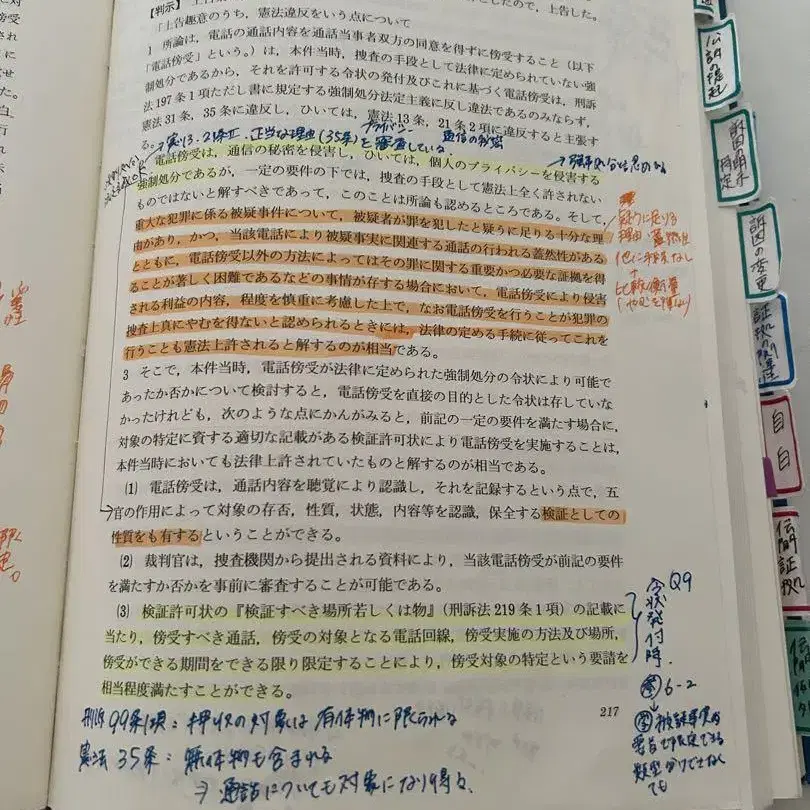 【判示】
「上告趣意のうち，憲法違反をいう点について
1 所論は，電話の通話内容を通話当事者双方の同意を得ずに傍受すること（以下
「電話傍受」という。）は，本件当時，捜査の手段として法律に定められていない強
制処分であるから，それを許可する令状の発付及びこれに基づく電話傍受は，刑訴
法197条1項ただし書に規定する強制処分法定主義に反し違法であるのみならず，
憲法31条，35条に違反し，ひいては，憲法13条，21条2項に違反すると主張す
る。
プライバシー
通信の秘密
正当な理由（35条）を審査している。
電話傍受は，通信の秘密を侵害し，ひいては，個人のプライバシーを侵害する
強制処分であるが，一定の要件の下では，捜査の手段として憲法上全く許されない
ものではないと解すべきであって，このことは所論も認めるところである。そして，
重大な犯罪に係る被疑事件について，被疑者が罪を犯したと疑うに足りる十分な理
由があり，かつ，当該電話により被疑事実に関連する通話の行われる蓋然性がある
とともに，電話傍受以外の方法によってはその罪に関する重要かつ必要な証拠を得
ることが著しく困難であるなどの事情が存する場合において，電話傍受により侵害
される利益の内容，程度を慎重に考慮した上で，なお電話傍受を行うことが犯罪の
捜査上真にやむを得ないと認められるときには，法律の定める手続に従ってこれを
行うことも憲法上許されると解するのが相当である。
疑うに足りる
理由・蓋然性
他に手段なし
+
比較衡量
3 そこで，本件当時，電話傍受が法律に定められた強制処分の令状により可能で
あったか否かについて検討すると，電話傍受を直接の目的とした令状は存していな
かったけれども，次のような点にかんがみると，前記の一定の要件を満たす場合に，
対象の特定に資する適切な記載がある検証許可状により電話傍受を実施することは，
本件当時においても法律上許されていたものと解するのが相当である。
(1) 電話傍受は，通話内容を聴覚により認識し，それを記録するという点で，五
官の作用によって対象の存否，性質，状態，内容等を認識，保全する検証としての
性質をも有するということができる。
(2) 裁判官は，捜査機関から提出される資料により，当該電話傍受が前記の要件
を満たすか否かを事前に審査することが可能である。
(3) 検証許可状の『検証すべき場所若しくは物』（刑訴法219条1項）の記載に
当たり，傍受すべき通話，傍受の対象となる電話回線，傍受実施の方法及び場所，
傍受ができる期間をできる限り限定することにより，傍受対象の特定という要請を
相当程度満たすことができる。
Q9
令状発付時.
6-2
217
刑訴99条1項：押収の対象は有体物に限られる
憲法35条：無体物も含まれる
⇒ 通話についても対象になり得る.
訴因の変更
自白
伝聞証拠